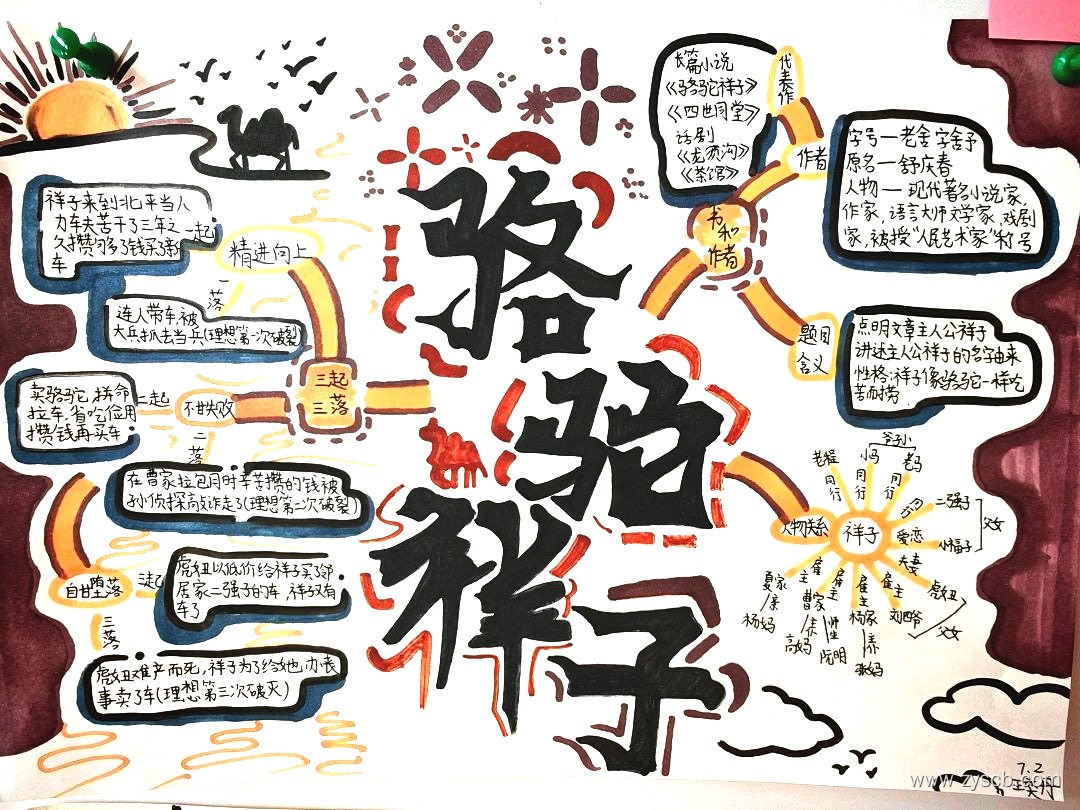 骆驼祥子
三起
三落
精进向上
一起
祥子来到北平当人
力车夫苦干了三年之
久攒够了钱买了新
车
一落
连人带车,被
大兵抓去当兵(理想第一次破裂)
不甘失败
二起
卖骆驼,拼命
拉车,省吃俭用
攒钱再买车
二落
在曹家拉包月时辛苦攒的钱被
孙侦探敲诈走了(理想第二次破裂)
自甘堕落
三起
虎妞以低价给祥子买了邻
居家二强子的车,祥子又有
车了
三落
虎妞难产而死,祥子为了给她办丧
事卖了车(理想第三次破灭)
书和
作者
作者
代表作
长篇小说
《骆驼祥子》
《四世同堂》
话剧
《龙须沟》
《茶馆》
字号—老舍 字舍予
原名—舒庆春
人物—现代著名小说家,
作家,语言大师文学家,戏剧
家,被授"人民艺术家"称号
题目
含义
点明文章主人公祥子
讲述主人公祥子的名字由来
性格:祥子像骆驼一样吃
苦耐劳
人物关系
祥子
老程
同行
爷子小
小马
同行
老马
同行
二强子
爱恋
小福子
父女
夫妻
虎妞
雇主
刘四爷
父女
雇主
杨家
张妈
雇主
曹家
高妈
师生
阮明
雇主
夏家
杨妈
7.2
www.zyscb.com